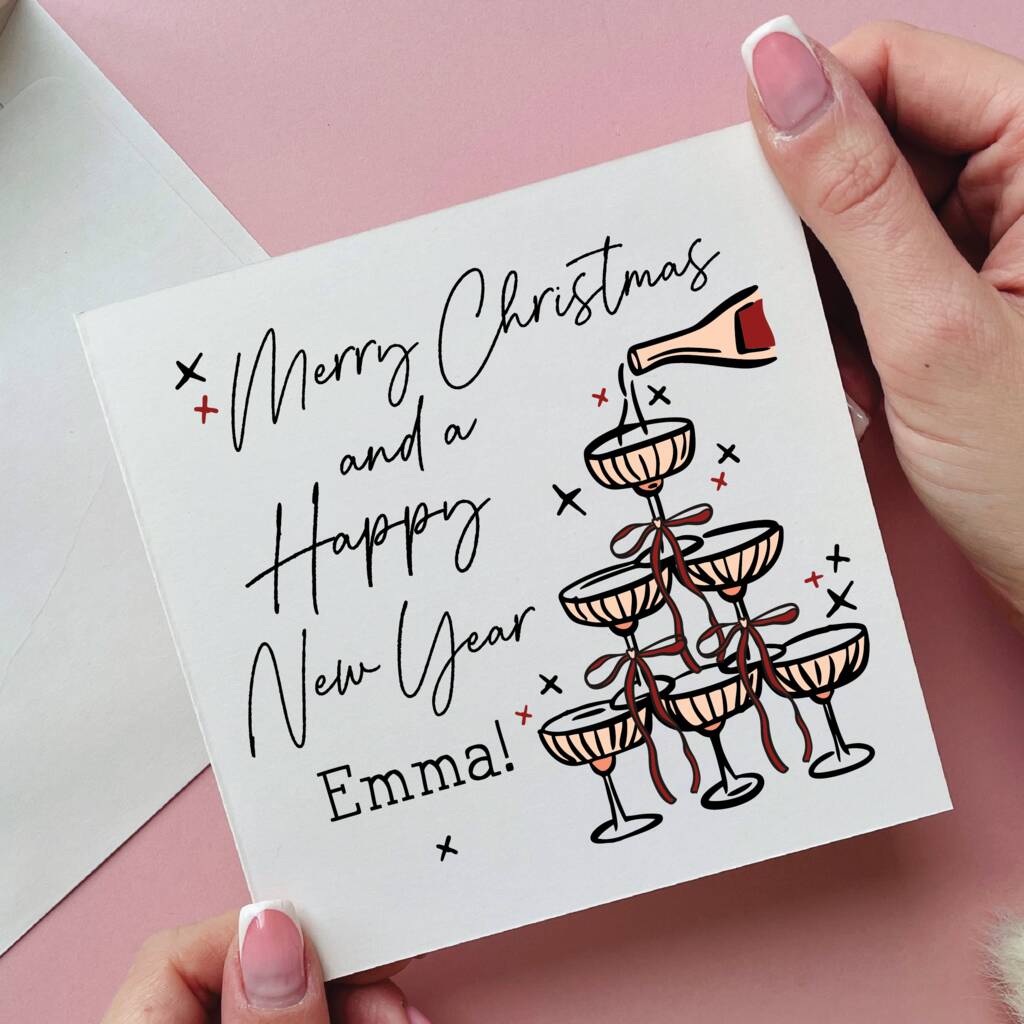 Merry Christmas
and a
Happy
New Year
Emma!